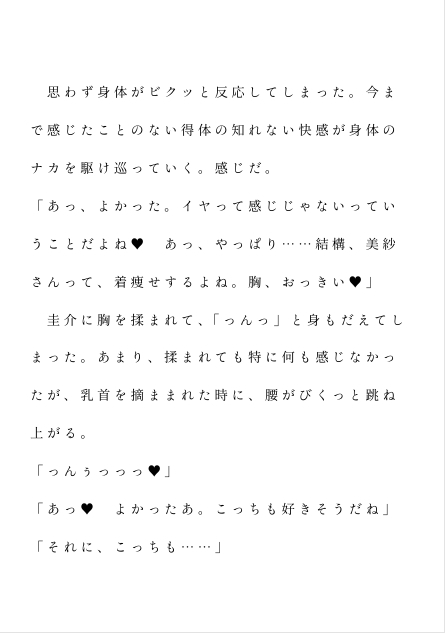 思わず身体がビクッと反応してしまった。今ま
で感じたことのない得体の知れない快感が身体の
ナカを駆け巡っていく。感じだ。
「あっ、よかった。イヤって感じじゃないってい
うことだよね♥　あっ、やっぱり……結構、美紗
さんって、着痩せするよね。胸、おっきい♥」
　圭介に胸を揉まれて、「っんっ」と身もだえてし
まった。あまり、揉まれても特に何も感じなかっ
たが、乳首を摘ままれた時に、腰がびくっと跳ね
上がる。
「っんぅっっっ♥」
「あっ♥　よかったあ。こっちも好きそうだね」
「それに、こっちも……」